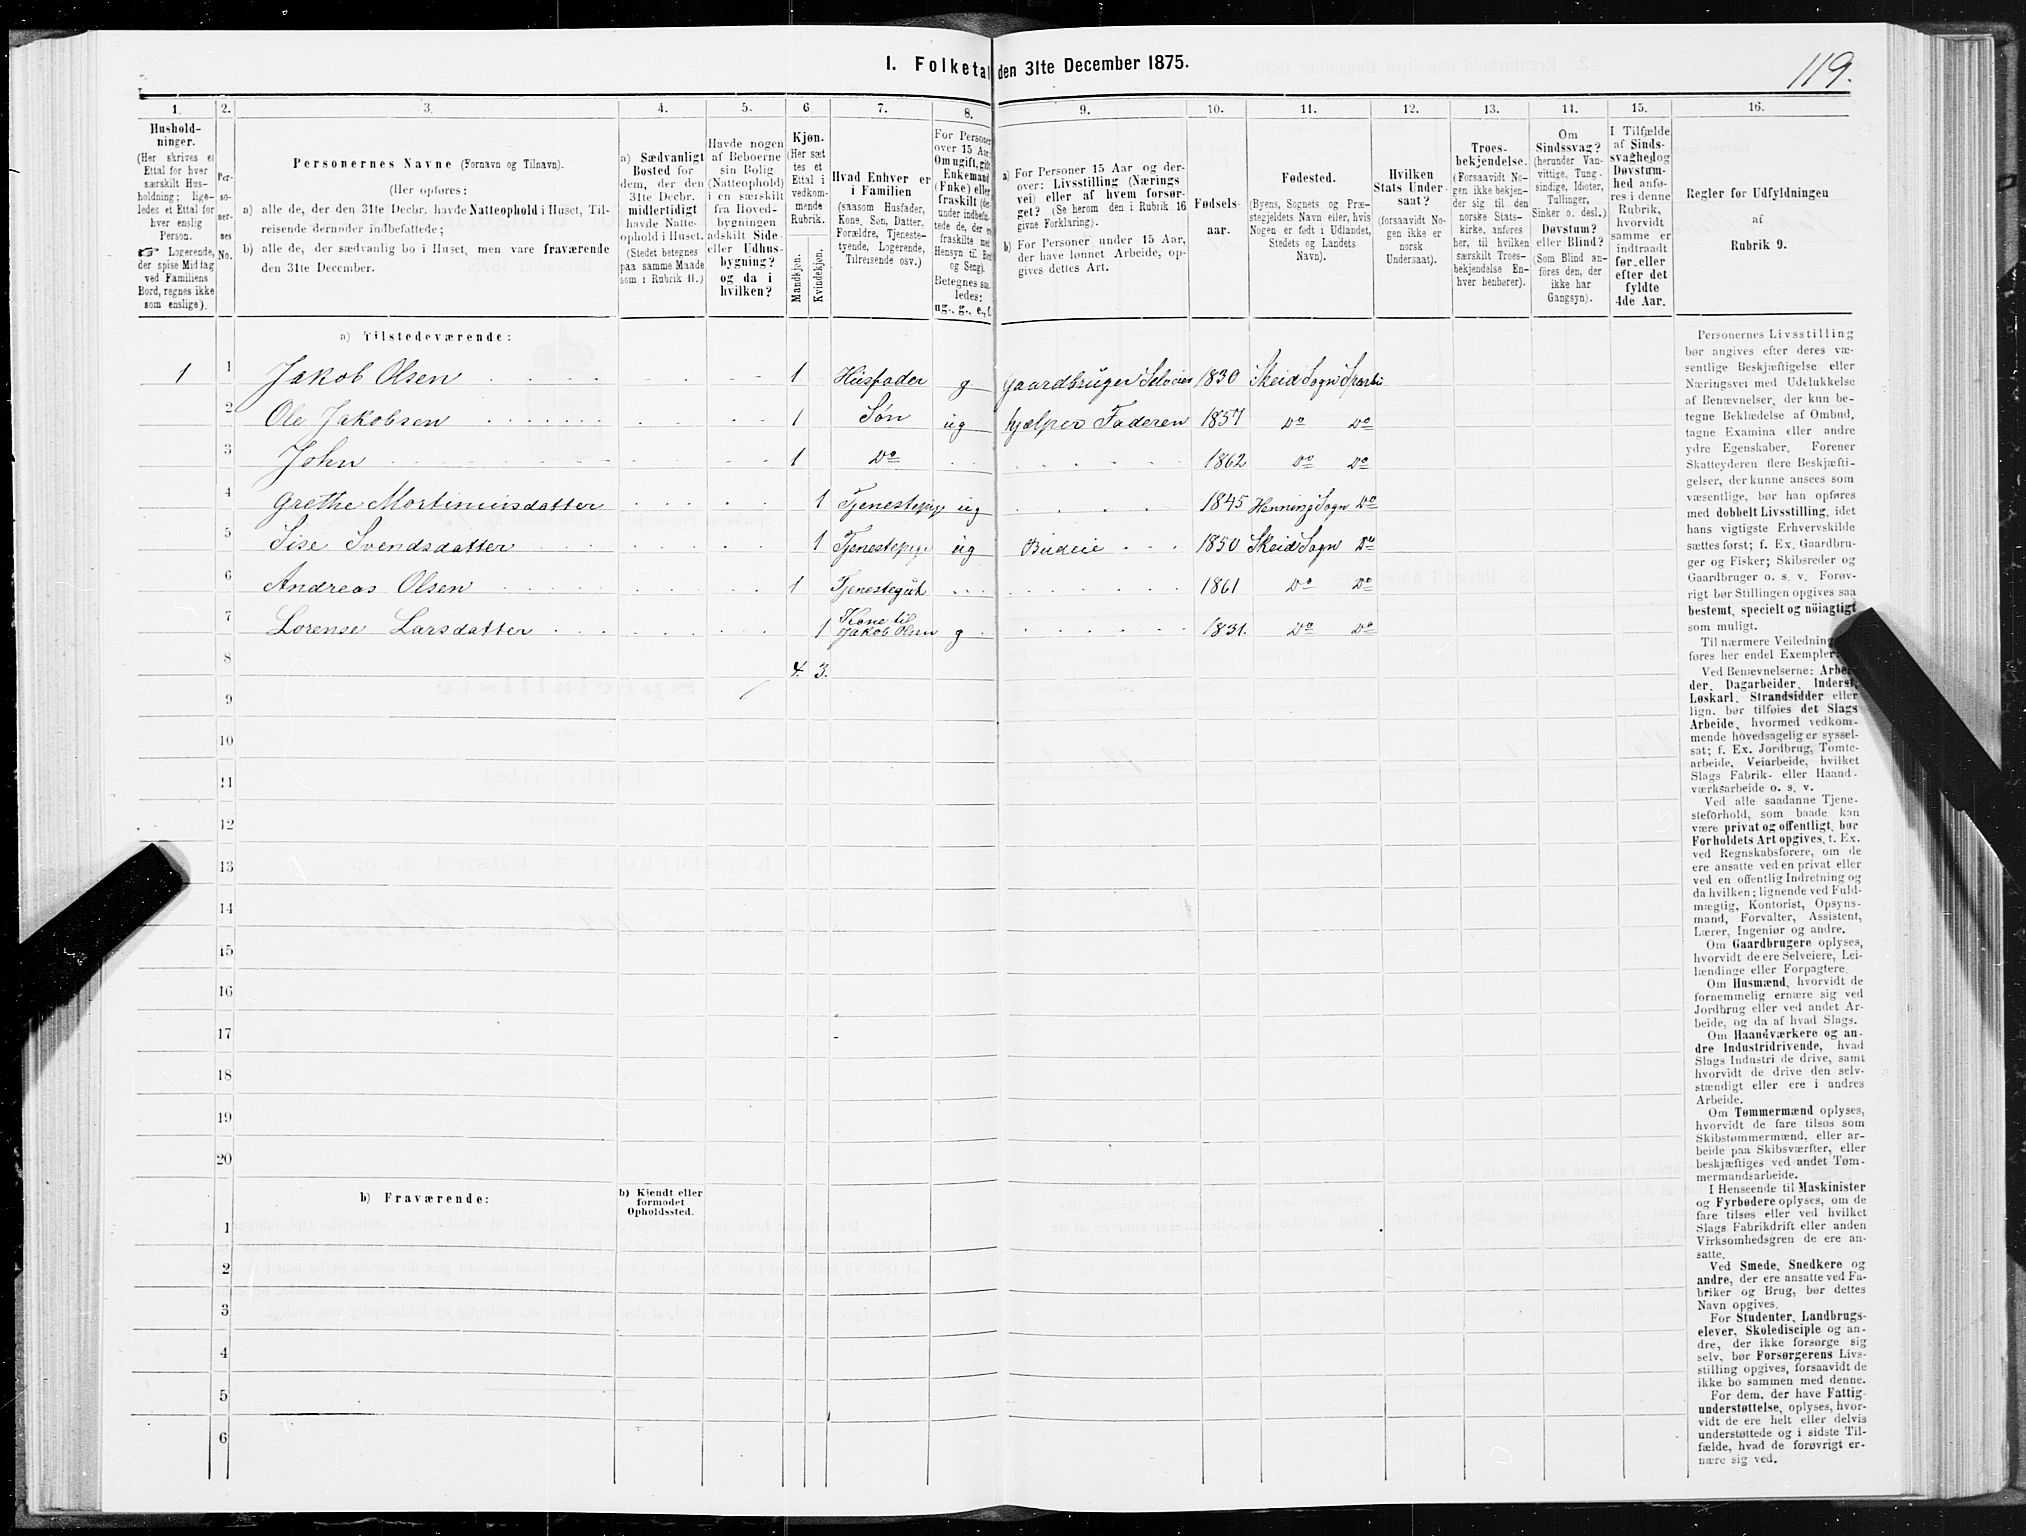 119.
I. Folketal den 31te December 1875.
1. 2. 3. 4. 5. 6. 7. 8. 9. 10. 11. 12. 13. 14. 15. 16.
Hushold-
ninger.
(Her skrives et
Ettal for hver
særskilt Hus-
holdning; lige-
ledes et Ettal for
hver enslig
Person.
☞ Logerende,
der spise Middag
ved Familiens
Bord, regnes ikke
som enslige).
Per-
so-
ner-
nes
No.
Personernes Navne (Fornavn og Tilnavn).
(Her opføres:
a) alle de, der den 31te Decbr. havde Natteophold i Huset, Til-
reisende derunder indbefattede;
b) alle de, der sædvanlig bo i Huset, men vare fraværende
den 31te December.
a) Sædvanligt
Bosted for
dem, der den
31te Decbr.
midlertidigt
havde Natte-
ophold i Huset.
(Stedet betegnes
paa samme Maade
som i Rubrik 11.)
Havde nogen
af Beboerne
sin Bolig
(Natteophold)
i en særskilt
fra Hoved-
bygningen
adskilt Side-
eller Udhus-
bygning?
og da i
hvilken?
Kjøn.
(Her sæt
tes et
Ettal i
vedkom-
mende
Rubrik.
Mandkjøn.
Kvindekjøn.
Hvad Enhver er
i Familien
(saasom Husfader,
Kone, Søn, Datter,
Forældre, Tjeneste-
tyende, Logerende,
Tilreisende osv.)
For Personer
over 15 Aar:
Om ugift, gift,
Enkemand
(Enke) eller
fraskilt
Betegnes saa-
ledes:
ug., g., e., f.
a) For Personer 15 Aar og der-
over: Livsstilling (Nærings
vei) eller af hvem forsør-
get? (Se herom den i Rubrik 16
givne Forklaring).
b) For Personer under 15 Aar,
der have lønnet Arbeide, op-
gives dettes Art.
Fødsels-
aar.
Fødested.
(Byens, Sognets og Præ-
stegjeldets Navn eller, hvis
Nogen er født i Udlandet,
Stedets og Landets
Navn).
Hvilken
Stats Under-
saat?
(forsaavidt No-
gen ikke er
norsk
Undersaat).
Troes-
bekjendelse.
(Forsaavidt No-
gen ikke bekjen-
der sig til den
norske Stats-
kirke, anføres
her, til hvilken
særskilt Troes-
bekjendelse En-
hver henhører).
Om
Sindssvag?
(herunder Van-
vittige, Tung-
sindige, Idioter,
Tullinger,
Sinker o. desl.)
Døvstum?
eller Blind?
(Som Blind an-
føres den, der
ikke har
Gangsyn).
I Tilfælde
af Sinds-
svaghed og
Døvstum-
hed anfø-
res i denne
Rubrik,
hvorvidt
samme er
indtraadt
før eller
efter det
fyldte
4de Aar.
Regler for Udfyldningen
af
Rubrik 9.
a) Tilstedeværende:
1 1 Jakob Olsen 1 Husfader g Gaardbruger Selveier 1830 Skeid Sogn Sparbu
2 Ole Jakobsen 1 Søn ug hjælper Faderen 1857 Do Do
3 John 1 Do 1862 Do Do
4 Grethe Mortinusdatter 1 Tjenestepige ug 1845 Henning Sogn Do
5 Sise Svendsdatter 1 Tjenestepige ug Budeie 1850 Skeid Sogn Do
6 Andreas Olsen 1 Tjenestegut 1861 Do Do
7 Lorense Larsdatter 1 Kone til Jakob Olsen g 1831. Do Do
8 4. 3.
9
10
11
12
13
14
15
16
17
18
19
20
b) Fraværende:
b) Kjendt eller
formodet
Opholdssted.
1
2
3
4
5
6
Personernes Livsstilling
bør angives efter deres væ-
sentlige Beskjæftigelse eller
Næringsvei med Udelukkelse
af Benævnelser, der kun be-
tegne Beklædelse af Ombud,
tagne Examina eller andre
ydre Egenskaber. Forener
Skatteyderen flere Beskjæfti-
gelser, der kunne ansees som
væsentlige, bør han opføres
med dobbelt Livsstilling, idet
hans vigtigste Erhvervskilde
sættes først; f. Ex. Gaardbru-
ger og Fisker; Skibsreder og
Gaardbruger o. s. v. Forøv-
rigt bør Stillingen opgives saa
bestemt, specielt og nöiagtigt
som muligt.
Til nærmere Veiledning
føres her endel Exempler:
Ved Benævnelserne: Arbei-
der, Dagarbeider, Inderst,
Løskarl, Strandsidder eller
lign. bør tilføies det Slags
Arbeide, hvormed vedkom-
mende hovedsagelig er syssel-
sat; f. Ex. Jordbrug, Tomte-
arbeide, Veiarbeide, hvilket
Slags Fabrik- eller Haand-
værksarbeide o. s. v.
Ved alle saadanne Tjene-
steforhold, som baade kan
være privat og offentligt, bør
Forholdets Art opgives, f. Ex.
ved Regnskabsførere, om de
ere ansatte ved en privat eller
ved en offentlig Indretning og
da hvilken; lignende ved Fuld-
mægtig, Kontorist, Opsyns-
mand, Forvalter, Assistent,
Lærer, Ingeniør og andre.
Om Gaardbrugere oplyses,
hvorvidt de ere Selveiere, Lei-
lændinge eller Forpagtere.
Om Husmænd, hvorvidt de
fornemmelig ernære sig ved
Jordbrug eller ved andet Ar-
beide, og da af hvad Slags.
Om Haandværkere og an-
dre Industridrivende, hvad
Slags Industri de drive, samt
hvorvidt de drive den selv-
stændigt eller ere i andres
Arbeide.
Om Tømmermænd oplyses,
hvorvidt de fare tilsøs som
Skibstømmermænd, eller ar-
beide paa Skibsværfter, eller
beskjæftiges ved andet Tøm-
mermandsarbeide.
I Henseende til Maskinister
og Fyrbødere oplyses, om de
fare tilsøs eller ved hvilket
Slags Fabrikdrift eller anden
Virksomhedsgren de ere an-
satte.
Ved Smede, Snedkere og
andre, der ere ansatte ved Fa-
briker og Brug, bør dettes
Navn opgives.
For Studenter, Landbrugs-
elever, Skoledisciple og an-
dre, der ikke forsørge sig
selv, bør Forsørgerens Livs-
stilling opgives, forsaavidt de
ikke bo sammen med denne.
For dem, der have Fattig-
understøttelse, oplyses, hvor-
vidt de ere helt eller delvis
understøttede og i sidste Til-
fælde, hvad de forøvrigt er-
nære sig ved.